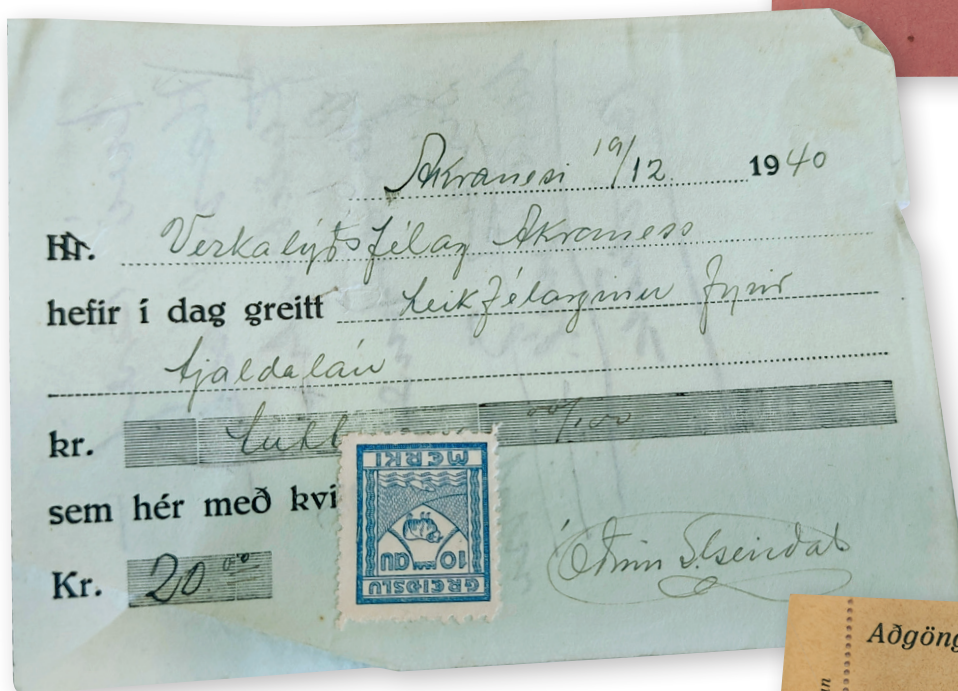 Akranesi 19/12 1940
Hr. Verkalýðsfélag Akraness
hefir í dag greitt Leikfélaginu fyrir
tjaldalán
kr. 00/100
sem hér með kvi
Kr. 20.00
MERKI
10 AU
GREIÐSLU
Óðinn S. Geirdal
Aðgöng